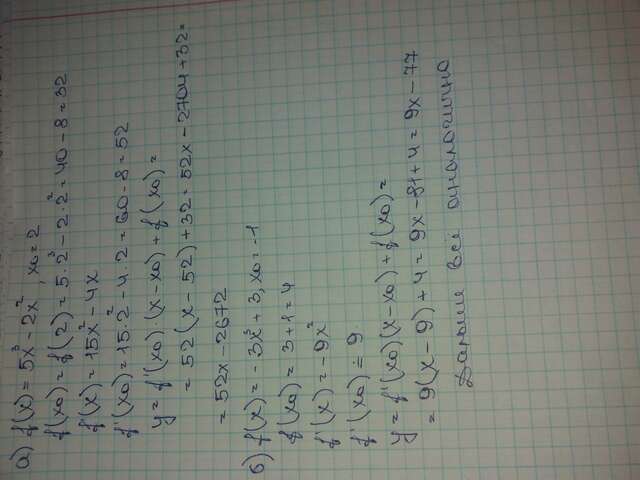 а) f(x) = 5x³ - 2x², x₀ = 2
f(x₀) = f(2) = 5·2³ - 2·2² = 40 - 8 = 32
f'(x) = 15x² - 4x
f'(x₀) = 15·2² - 4·2 = 60 - 8 = 52
y = f'(x₀)·(x - x₀) + f(x₀) =
= 52(x - 52) + 32 = 52x - 2704 + 32 =
= 52x - 2672
б) f(x) = -3x³ + 3, x₀ = -1
f(x₀) = 3 + 1 = 4
f'(x) = -9x²
f'(x₀) = 9
y = f'(x₀)(x - x₀) + f(x₀) =
= 9(x - 9) + 4 = 9x - 81 + 4 = 9x - 77
Дальше всё аналогично